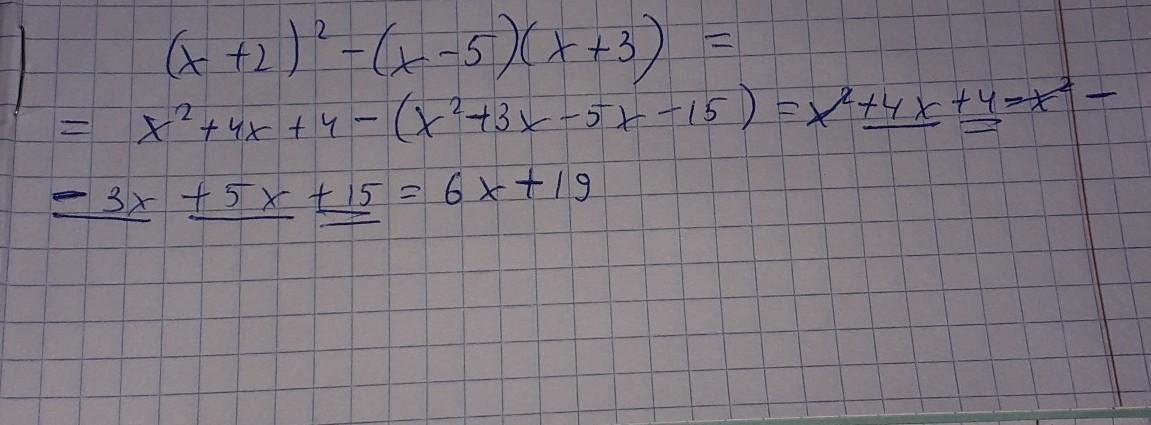 (x+2)² - (x-5)(x+3) =
= x²+4x+4-(x²+3x-5x-15) = x²+4x+4-x²-
-3x+5x+15 = 6x+19